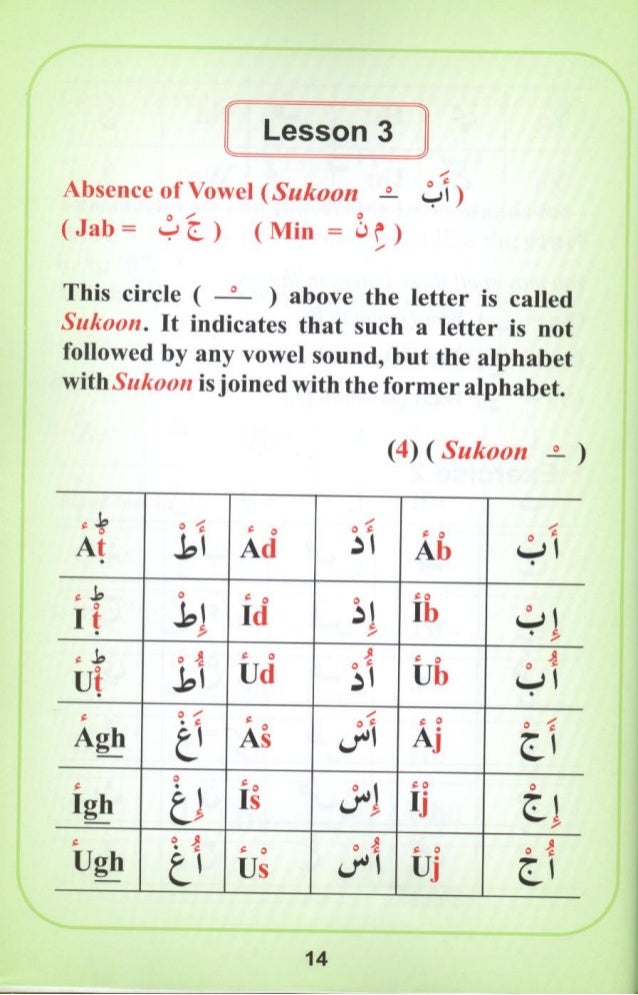 Lesson 3
Absence of Vowel ( Sukoon ـْ أَبْ )
( Jab = جَ بْ ) ( Min = مِ نْ )
This circle ( ـْ ) above the letter is called
Sukoon. It indicates that such a letter is not
followed by any vowel sound, but the alphabet
with Sukoon is joined with the former alphabet.
(4) ( Sukoon ـْ )
Aṭ أَطْ Ad أَدْ Ab أَبْ
Iṭ إِطْ Id إِدْ Ib إِبْ
Uṭ أُطْ Ud أُدْ Ub أُبْ
Agh أَغْ As أَسْ Aj أَجْ
Igh إِغْ Is إِسْ Ij إِجْ
Ugh أُغْ Us أُسْ Uj أُجْ
14